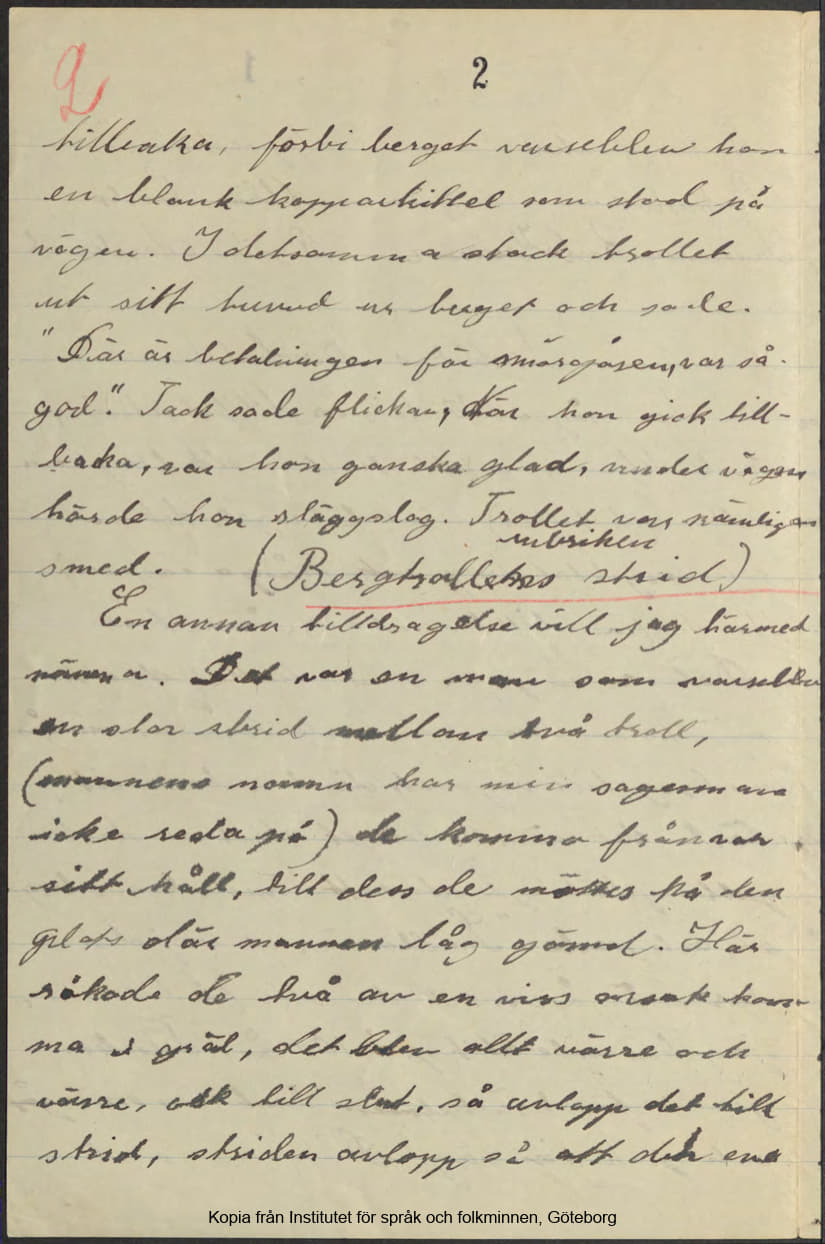 2
2
tillbaka, förbi berget varseblev hon
en blank kopparkittel som stod på
vägen. I detsamma stack trollet
ut sitt huvud ur berget och sade.
"Där är betalningen för smörgåsen, var så
god". Tack sade flickan, När hon gick till-
baka, var hon ganska glad, under vägen
hörde hon släggslag. Trollet var nämligen
rubriken
smed. (Bergtrollets strid)
En annan tilldragelse vill jag härmed
nämna. Det var en man som varseblev
en stor strid mellan två troll,
(mannens namn har min sagesman
icke reda på) de komma från var
sitt håll, till dess de möttes på den
plats där mannen låg gömd. Här
råkade de två av en viss orsak kom-
ma i gräl, det blev allt värre och
värre, och till slut, så avlopp det till
strid, striden avlopp så att den ena
Kopia från Institutet för språk och folkminnen, Göteborg